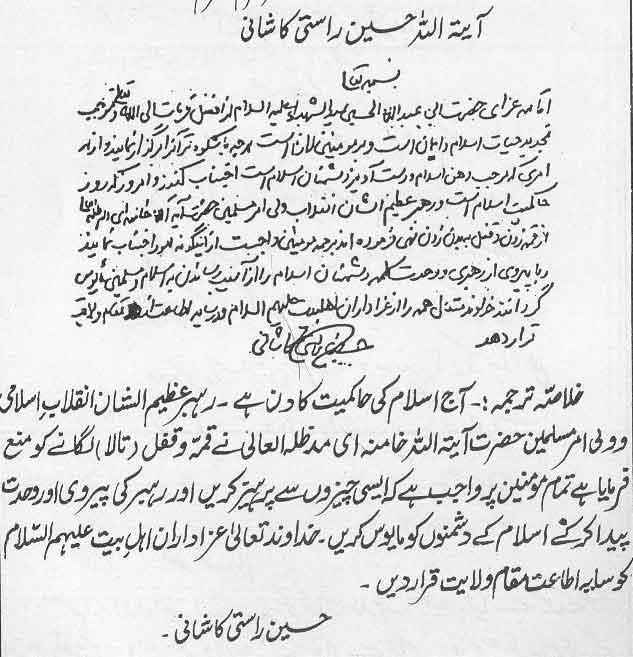 آیۃ اللہ حسین راستی کاشانی
بسمه تعالی
اقامه عزای حضرت ابی عبدالله الحسین سیدالشهداء علیه السلام از افضل قربات الی الله و موجب
تجدید حیات اسلام و ایمان است و بر مؤمنین لازم است هر چه باشکوه‌تر آنرا برگزار نمایند و از هر
امری که موجب وهن اسلام و دست‌آویز دشمنان اسلام است اجتناب کنند و امروز که روز
حاکمیت اسلام است و رهبر عظیم الشان انقلاب ولی امر مسلمین حضرت آیة الله خامنه‌ای مدظله العالی
از قمه زدن و قفل به بدن زدن نهی فرموده اند بر همه مؤمنین واجبست از اینگونه امور اجتناب نمایند
و با پیروی از رهبری و وحدت کلمه دشمنان اسلام را از آسیب رساندن به اسلام و مسلمین مأیوس
گردانند خداوند متعال همه را از عزاداران اهلبیت علیهم السلام و در سایه اطاعت مقام ولایت
قرار دهد
حسین راستی کاشانی
خلاصتہ ترجمہ :۔ آج اسلام کی حاکمیت کا دن ہے ۔ رہبر عظیم الشان انقلاب اسلامی
و ولی امر مسلمین حضرت آیۃ اللہ خامنہ ای مدظلہ العالی نے قمہ و قفل (تالا) لگانے کو منع
فرمایا ہے تمام مومنین پر واجب ہے کہ ایسی چیزوں سے پرہیز کریں اور رہبر کی پیروی اور وحدت
پیدا کرکے اسلام کے دشمنوں کو مایوس کریں ۔ خداوند تعالیٰ عزاداران اہل بیت علیہم السّلام
کو سایہ اطاعت مقام ولایت قرار دیں ۔
حسین راستی کاشانی ۔